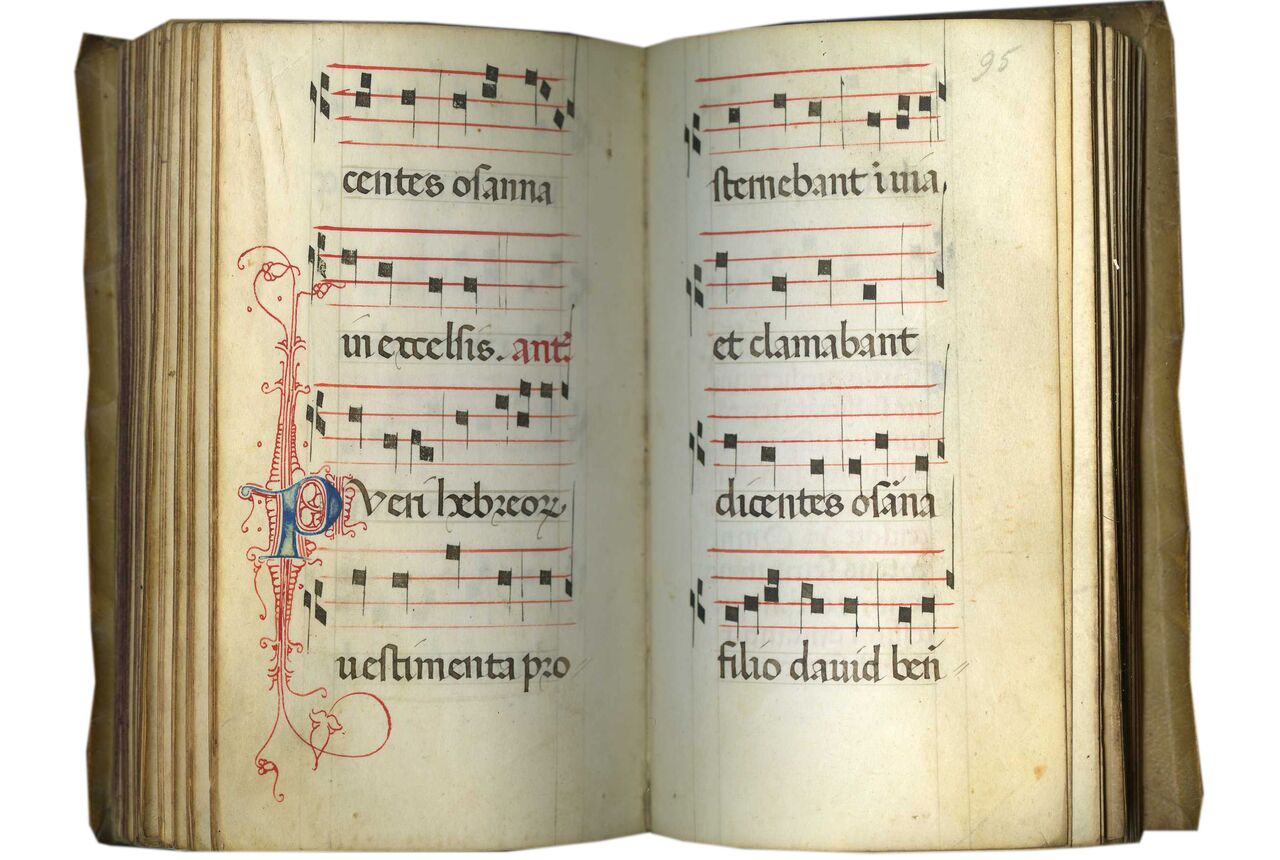 centes osanna
in excelsis. ant̃
Pueri hebreoꝝ
uestimenta pro
95
sternebant i uia,
et clamabant
dicentes osãna
filio dauid ben̄